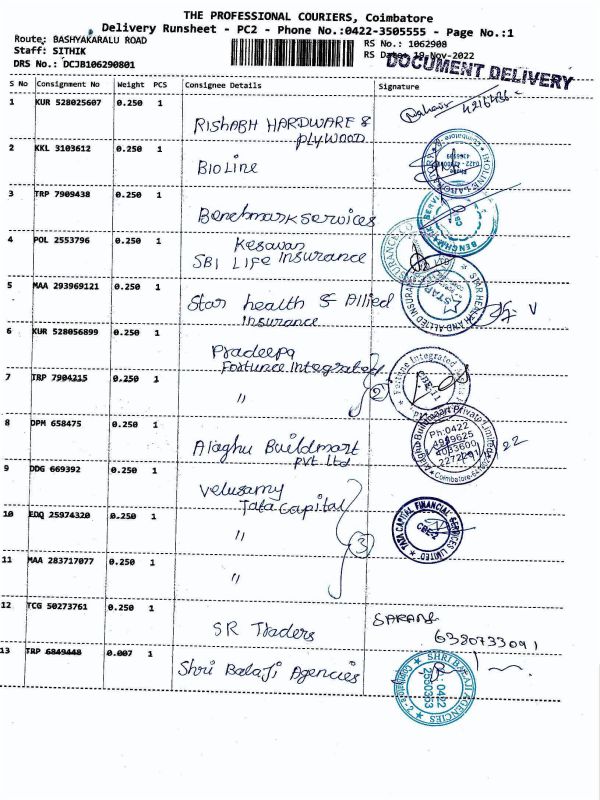 THE PROFESSIONAL COURIERS, Coimbatore
Delivery Runsheet - PC2 - Phone No.:0422-3505555 - Page No.:1
Route: BASHYAKARALU ROAD
RS No.: 1062908
Staff: SITHIK
RS Date: 19-Nov-2022
DRS No.: DCJB106290801
DOCUMENT DELIVERY
S No Consignment No Weight PCS Consignee Details Signature
1 KUR 528025607 0.250 1
RISHABH HARDWARE &
PLYWOOD
2 KKL 3103612 0.250 1
BIOLINE
3 TRP 7909438 0.250 1
Benchmark services
4 POL 2553796 0.250 1
Kesavan
SBI LIFE Insurance
5 MAA 293969121 0.250 1
Star health & Allied
Insurance
STAR HEALTH AND ALLIED INSURANCE
6 KUR 528056899 0.250 1
Pradeepa
Fortune Integrated
Fortune Integrated
7 TRP 7904215 0.250 1
"
2
8 DPM 658475 0.250 1
Alaghu Buildmart
Pvt Ltd
Alaghu Buildmaart Private Limited
Ph:0422
Coimbatore
22
9 DDG 669392 0.250 1
Velusamy
Tata Capital
TATA CAPITAL FINANCIAL SERVICES LIMITED
10 EDQ 25974320 0.250 1
"
3
11 MAA 283717077 0.250 1
"
12 TCG 50273761 0.250 1
SR Traders
SARAN
6380733091
13 TRP 6849448 0.007 1
Shri Balaji Agencies
SHRI BALAJI AGENCIES
0422
2550353